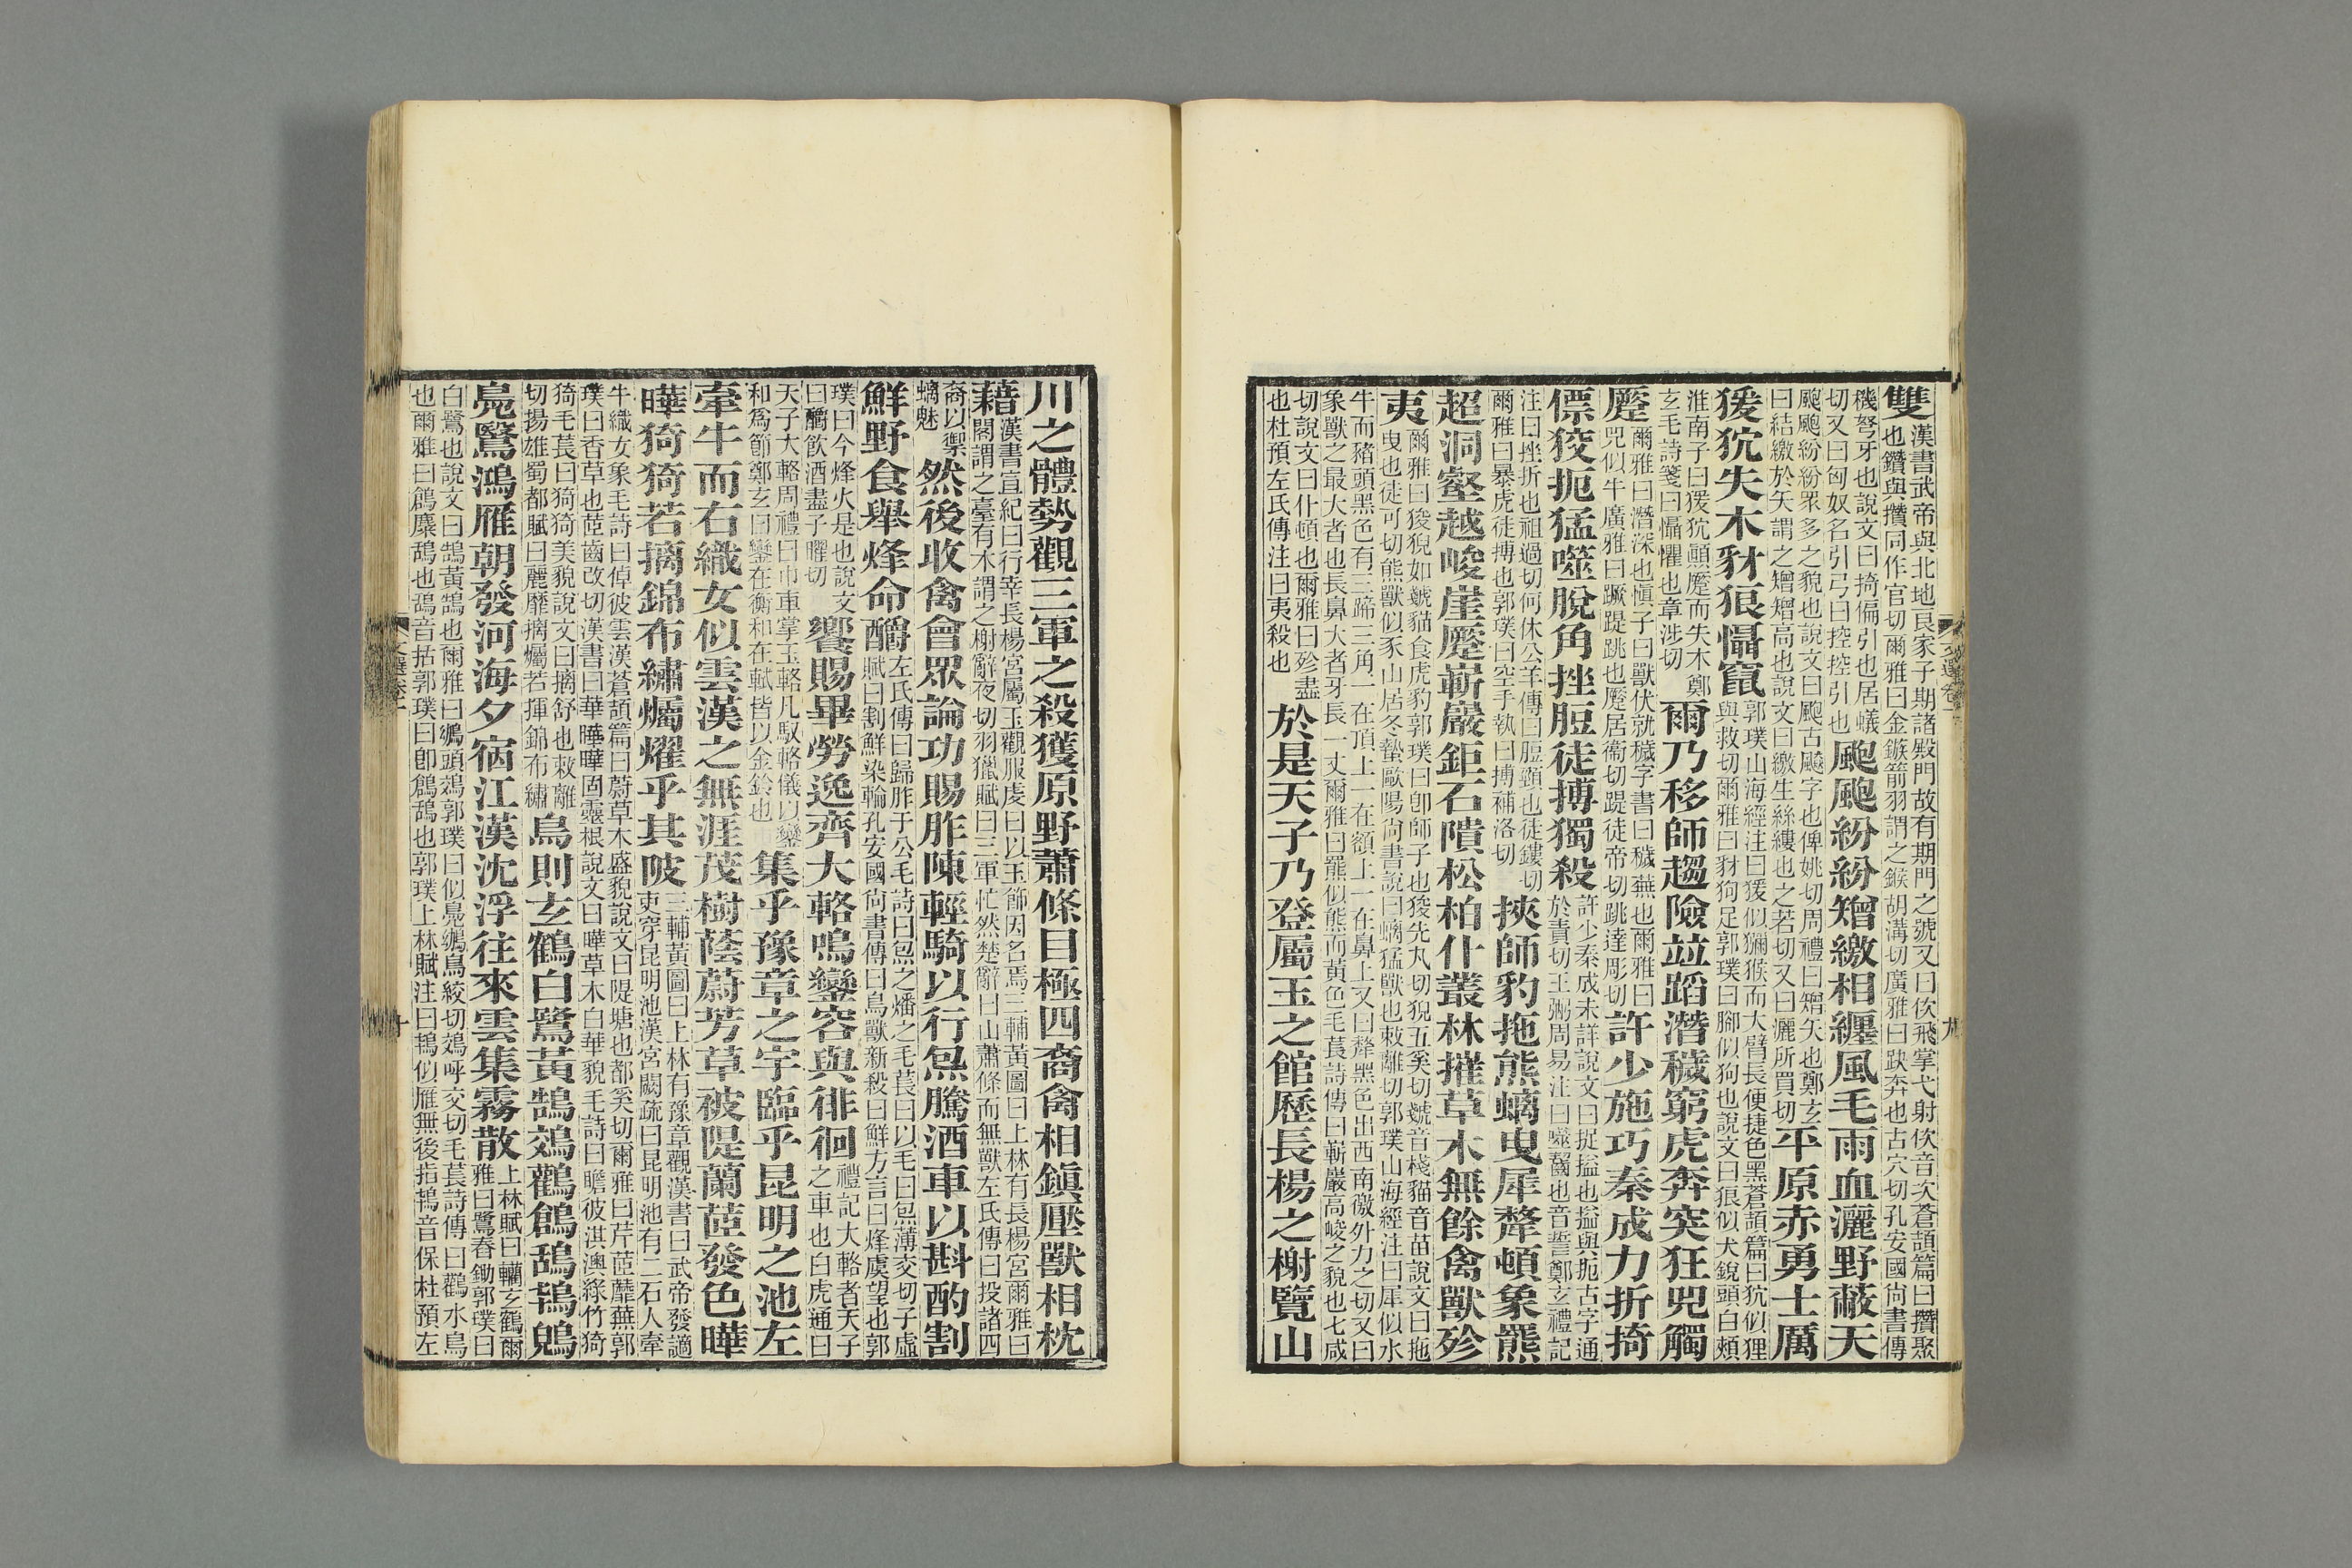 雙漢書武帝與北地良家子期諸殿門故有期門之號又曰佽飛掌弋射佽音次蒼頡篇曰攢聚
也鑽與攢同作官切爾雅曰金鏃箭羽謂之鍭胡溝切廣雅曰趹奔也古穴切孔安國尚書傳
機弩牙也說文曰掎偏引也居蟻
切又曰匈奴名引弓曰控控引也
颮颮紛紛矰繳相纏風毛雨血灑野蔽天
颮颮紛紛衆多之貌也說文曰颮古飈字也俾姚切周禮曰矰矢也鄭玄
曰結繳於矢謂之矰矰高也說文曰繳生絲縷也之若切又曰灑所買切
平原赤勇士厲
猨狖失木豺狼懾竄
郭璞山海經注曰猨似獼猴而大臂長便捷色黑蒼頡篇曰狖似狸
與救切爾雅曰豺狗足郭璞曰腳似狗也說文曰狼似犬銳頭白頰
淮南子曰猨狖顚蹷而失木鄭
玄毛詩箋曰懾懼也章涉切
爾乃移師趨險竝蹈潛穢窮虎奔突狂兕觸
蹷
爾雅曰潛深也愼子曰獸伏就穢字書曰穢蕪也爾雅曰
兕似牛廣雅曰蹶踶跳也蹷居衞切踶徒帝切跳達彫切
許少施巧秦成力折掎
僄狡扼猛噬脫角挫脰徒搏獨殺
許少秦成未詳說文曰捉搤也搤與扼古字通
於責切王弼周易注曰噬齧也音誓鄭玄禮記
注曰挫折也祖過切何休公羊傳曰脰頸也徒鏤切
爾雅曰暴虎徒搏也郭璞曰空手執曰搏補洛切
挾師豹拖熊螭曳犀犛頓象羆
超洞壑越峻崖蹷嶄巖鉅石隤松柏仆叢林摧草木無餘禽獸殄
夷
爾雅曰狻猊如虦貓食虎豹郭璞曰卽師子也狻先丸切猊五奚切虦音棧貓音苗說文曰拖
曳也徒可切熊獸似豕山居冬蟄歐陽尚書說曰螭猛獸也敕離切郭璞山海經注曰犀似水
牛而豬頭黑色有三蹄三角一在頂上一在額上一在鼻上又曰犛黑色出西南徼外力之切又曰
象獸之最大者也長鼻大者牙長一丈爾雅曰羆似熊而黃色毛萇詩傳曰嶄巖高峻之貌也七咸
切說文曰什頓也爾雅曰殄盡
也杜預左氏傳注曰夷殺也
於是天子乃登屬玉之館歷長楊之榭覽山
川之體勢觀三軍之殺獲原野蕭條目極四裔禽相鎭壓獸相枕
藉
漢書宣紀曰行幸長楊宮屬玉觀服虔曰以玉飾因名焉三輔黃圖曰上林有長楊宮爾雅曰
閣謂之臺有木謂之榭辭夜切羽獵賦曰三軍忙然楚辭曰山蕭條而無獸左氏傳曰投諸四
裔以禦
螭魅
然後收禽會眾論功賜胙陳輕騎以行炰騰酒車以斟酌割
鮮野食舉烽命釂
左氏傳曰歸胙于公毛詩曰炰之燔之毛萇曰以毛曰炰薄交切子虛
賦曰割鮮染輪孔安國尚書傳曰鳥獸新殺曰鮮方言曰烽虞望也郭
璞曰今烽火是也說文
曰釂飲酒盡子曜切
饗賜畢勞逸齊大輅鳴鑾容與徘徊
禮記大輅者天子
之車也白虎通曰
天子大輅周禮曰巾車掌玉輅凡馭輅儀以鑾
和爲節鄭玄曰鑾在衡和在軾皆以金鈴也
集乎豫章之宇臨乎昆明之池左
牽牛而右織女似雲漢之無涯茂樹蔭蔚芳草被隄蘭茝發色曄
曄猗猗若摛錦布繡爥燿乎其陂
三輔黃圖曰上林有豫章觀漢書曰武帝發謫
吏穿昆明池漢宮闕疏曰昆明池有二石人牽
牛織女象毛詩曰倬彼雲漢蒼頡篇曰蔚草木盛貌說文曰隄塘也都奚切爾雅曰芹茝蘼蕪郭
璞曰香草也茝齒改切漢書曰華曄曄固靈根說文曰曄草木白華貌毛詩曰瞻彼淇澳綠竹猗
猗毛萇曰猗猗美貌說文曰摛舒也敕離
切揚雄蜀都賦曰麗靡摛爥若揮錦布繡
鳥則玄鶴白鷺黃鵠鵁鸛鶬鴰鴇鶂
鳧鷖鴻雁朝發河海夕宿江漢沈浮往來雲集霧散
上林賦曰轥玄鶴爾
雅曰鷺舂鋤郭璞曰
白鷺也說文曰鵠黃鵠也爾雅曰鳽頭鵁郭璞曰似鳧鳽鳥絞切鵁呼交切毛萇詩傳曰鸛水鳥
也爾雅曰鶬麋鴰也鴰音括郭璞曰卽鶬鴰也郭璞上林賦注曰鴇似雁無後指鴇音保杜預左